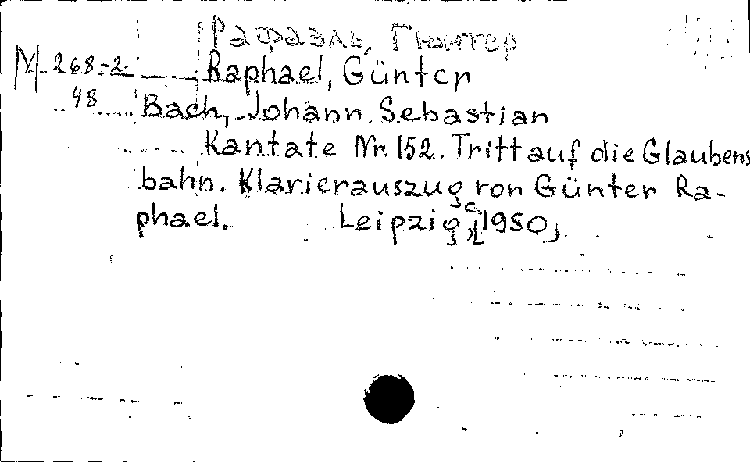 Рафаэль, Гюнтер
М-268-2 Raphael, Günter
48 Bach, Johann Sebastian
Kantate Nr. 152. Tritt auf die Glaubens
bahn. Klavierauszug von Günter Ra-
phael. Leipzig, [1950]